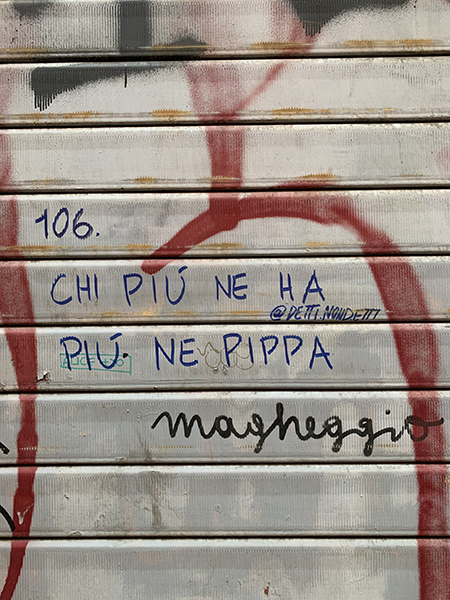 106.
CHI PIÚ NE HA
@DETTI.NONDETTI
PIÚ NE PIPPA
magheggio